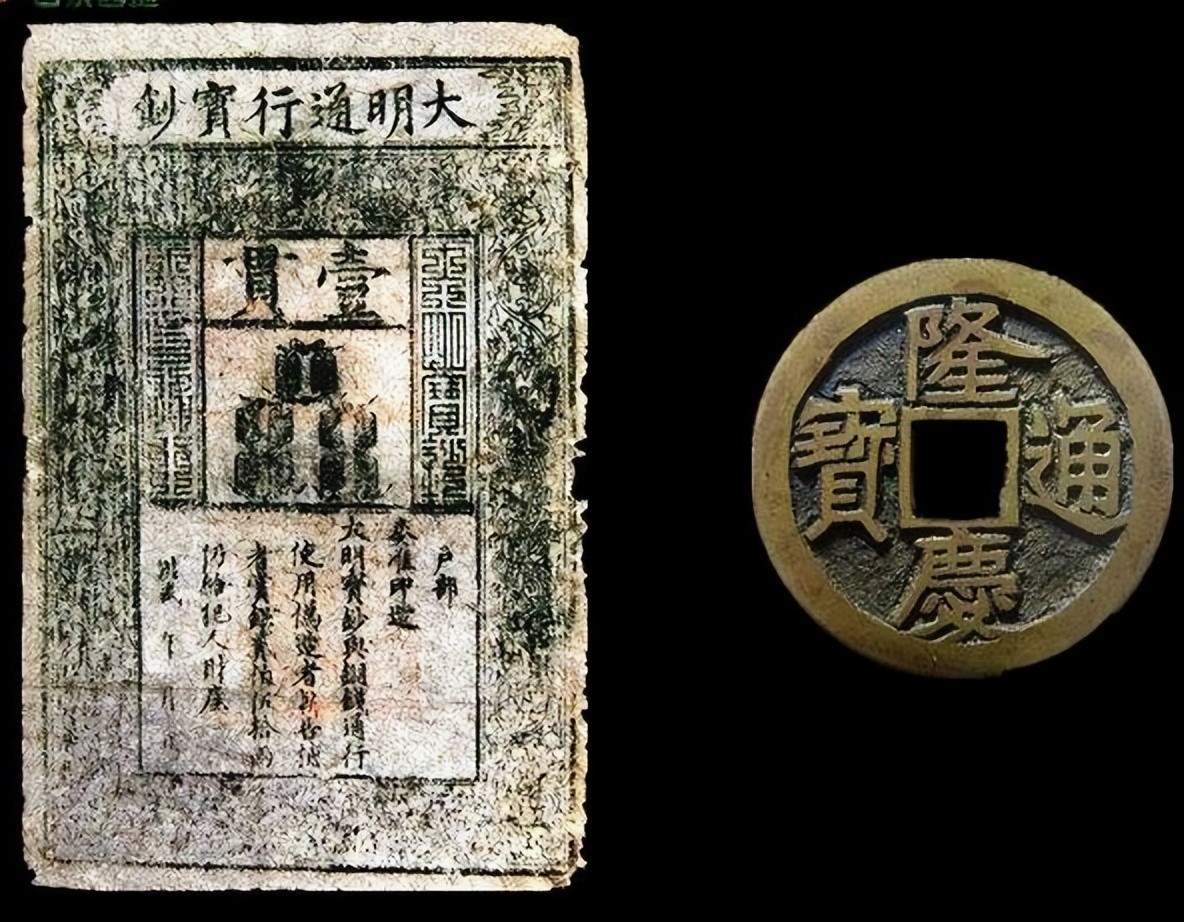 大明通行寶鈔
壹貫
戶部
奏准印造
大明寶鈔與銅錢通行
使用偽造者斬告捕
者賞銀貳伯伍拾兩
仍給犯人財產
洪武 年 月
隆慶通寶